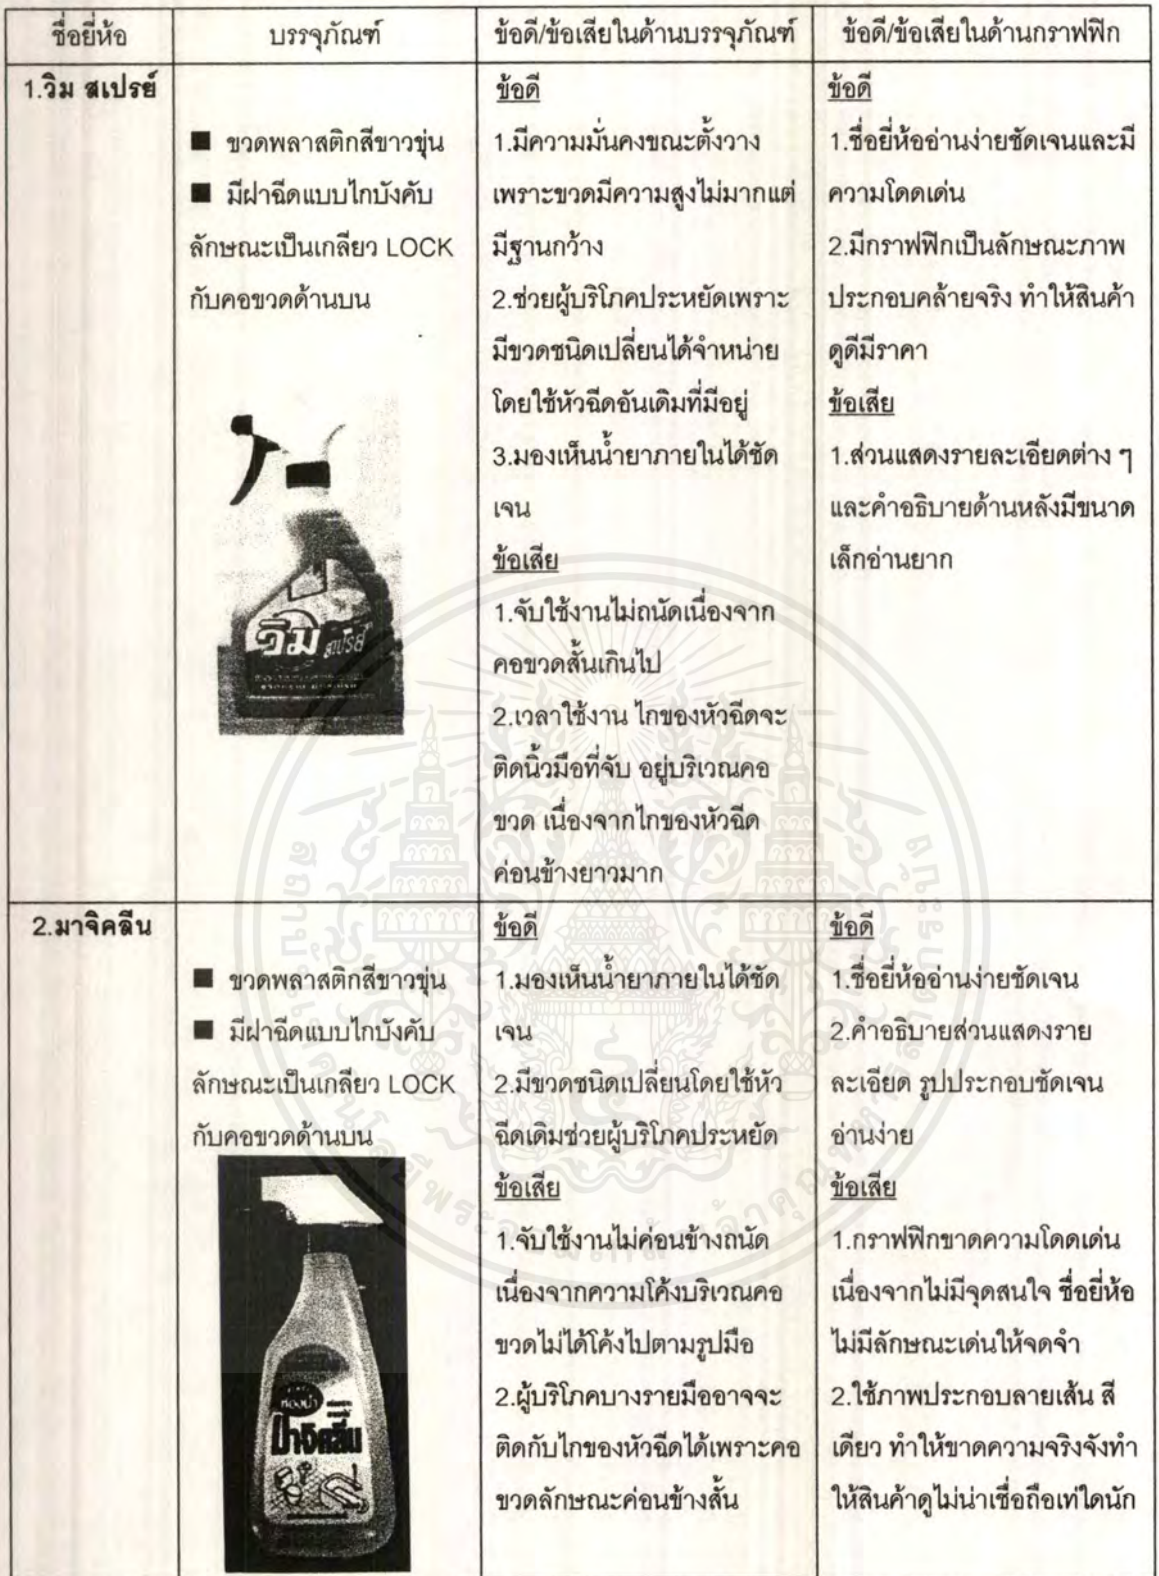 ชื่อยี่ห้อ
บรรจุภัณฑ์
ข้อดี/ข้อเสียในด้านบรรจุภัณฑ์
ข้อดี/ข้อเสียในด้านกราฟฟิก
1.วิม สเปรย์
■ ขวดพลาสติกสีขาวขุ่น
■ มีฝาฉีดแบบไกบังคับ
ลักษณะเป็นเกลียว LOCK
กับคอขวดด้านบน
วิม สเปรย์
ข้อดี
1.มีความมั่นคงขณะตั้งวาง
เพราะขวดมีความสูงไม่มากแต่
มีฐานกว้าง
2.ช่วยผู้บริโภคประหยัดเพราะ
มีขวดชนิดเปลี่ยนได้จำหน่าย
โดยใช้หัวฉีดอันเดิมที่มีอยู่
3.มองเห็นน้ำยาภายในได้ชัด
เจน
ข้อเสีย
1.จับใช้งานไม่ถนัดเนื่องจาก
คอขวดสั้นเกินไป
2.เวลาใช้งาน ไกของหัวฉีดจะ
ติดนิ้วมือที่จับ อยู่บริเวณคอ
ขวด เนื่องจากไกของหัวฉีด
ค่อนข้างยาวมาก
ข้อดี
1.ชื่อยี่ห้ออ่านง่ายชัดเจนและมี
ความโดดเด่น
2.มีกราฟฟิกเป็นลักษณะภาพ
ประกอบคล้ายจริง ทำให้สินค้า
ดูดีมีราคา
ข้อเสีย
1.ส่วนแสดงรายละเอียดต่าง ๆ
และคำอธิบายด้านหลังมีขนาด
เล็กอ่านยาก
2.มาจิคลีน
■ ขวดพลาสติกสีขาวขุ่น
■ มีฝาฉีดแบบไกบังคับ
ลักษณะเป็นเกลียว LOCK
กับคอขวดด้านบน
ห้องน้ำ
มาจิคลีน
ข้อดี
1.มองเห็นน้ำยาภายในได้ชัด
เจน
2.มีขวดชนิดเปลี่ยนโดยใช้หัว
ฉีดเดิมช่วยผู้บริโภคประหยัด
ข้อเสีย
1.จับใช้งานไม่ค่อนข้างถนัด
เนื่องจากความโค้งบริเวณคอ
ขวดไม่ได้โค้งไปตามรูปมือ
2.ผู้บริโภคบางรายมืออาจจะ
ติดกับไกของหัวฉีดได้เพราะคอ
ขวดลักษณะค่อนข้างสั้น
ข้อดี
1.ชื่อยี่ห้ออ่านง่ายชัดเจน
2.คำอธิบายส่วนแสดงราย
ละเอียด รูปประกอบชัดเจน
อ่านง่าย
ข้อเสีย
1.กราฟฟิกขาดความโดดเด่น
เนื่องจากไม่มีจุดสนใจ ชื่อยี่ห้อ
ไม่มีลักษณะเด่นให้จดจำ
2.ใช้ภาพประกอบลายเส้น สี
เดียว ทำให้ขาดความจริงจังทำ
ให้สินค้าดูไม่น่าเชื่อถือเท่ใดนัก
สถาบันเทคโนโลยีพระจอมเกล้าคุณทหารลาดกระบัง